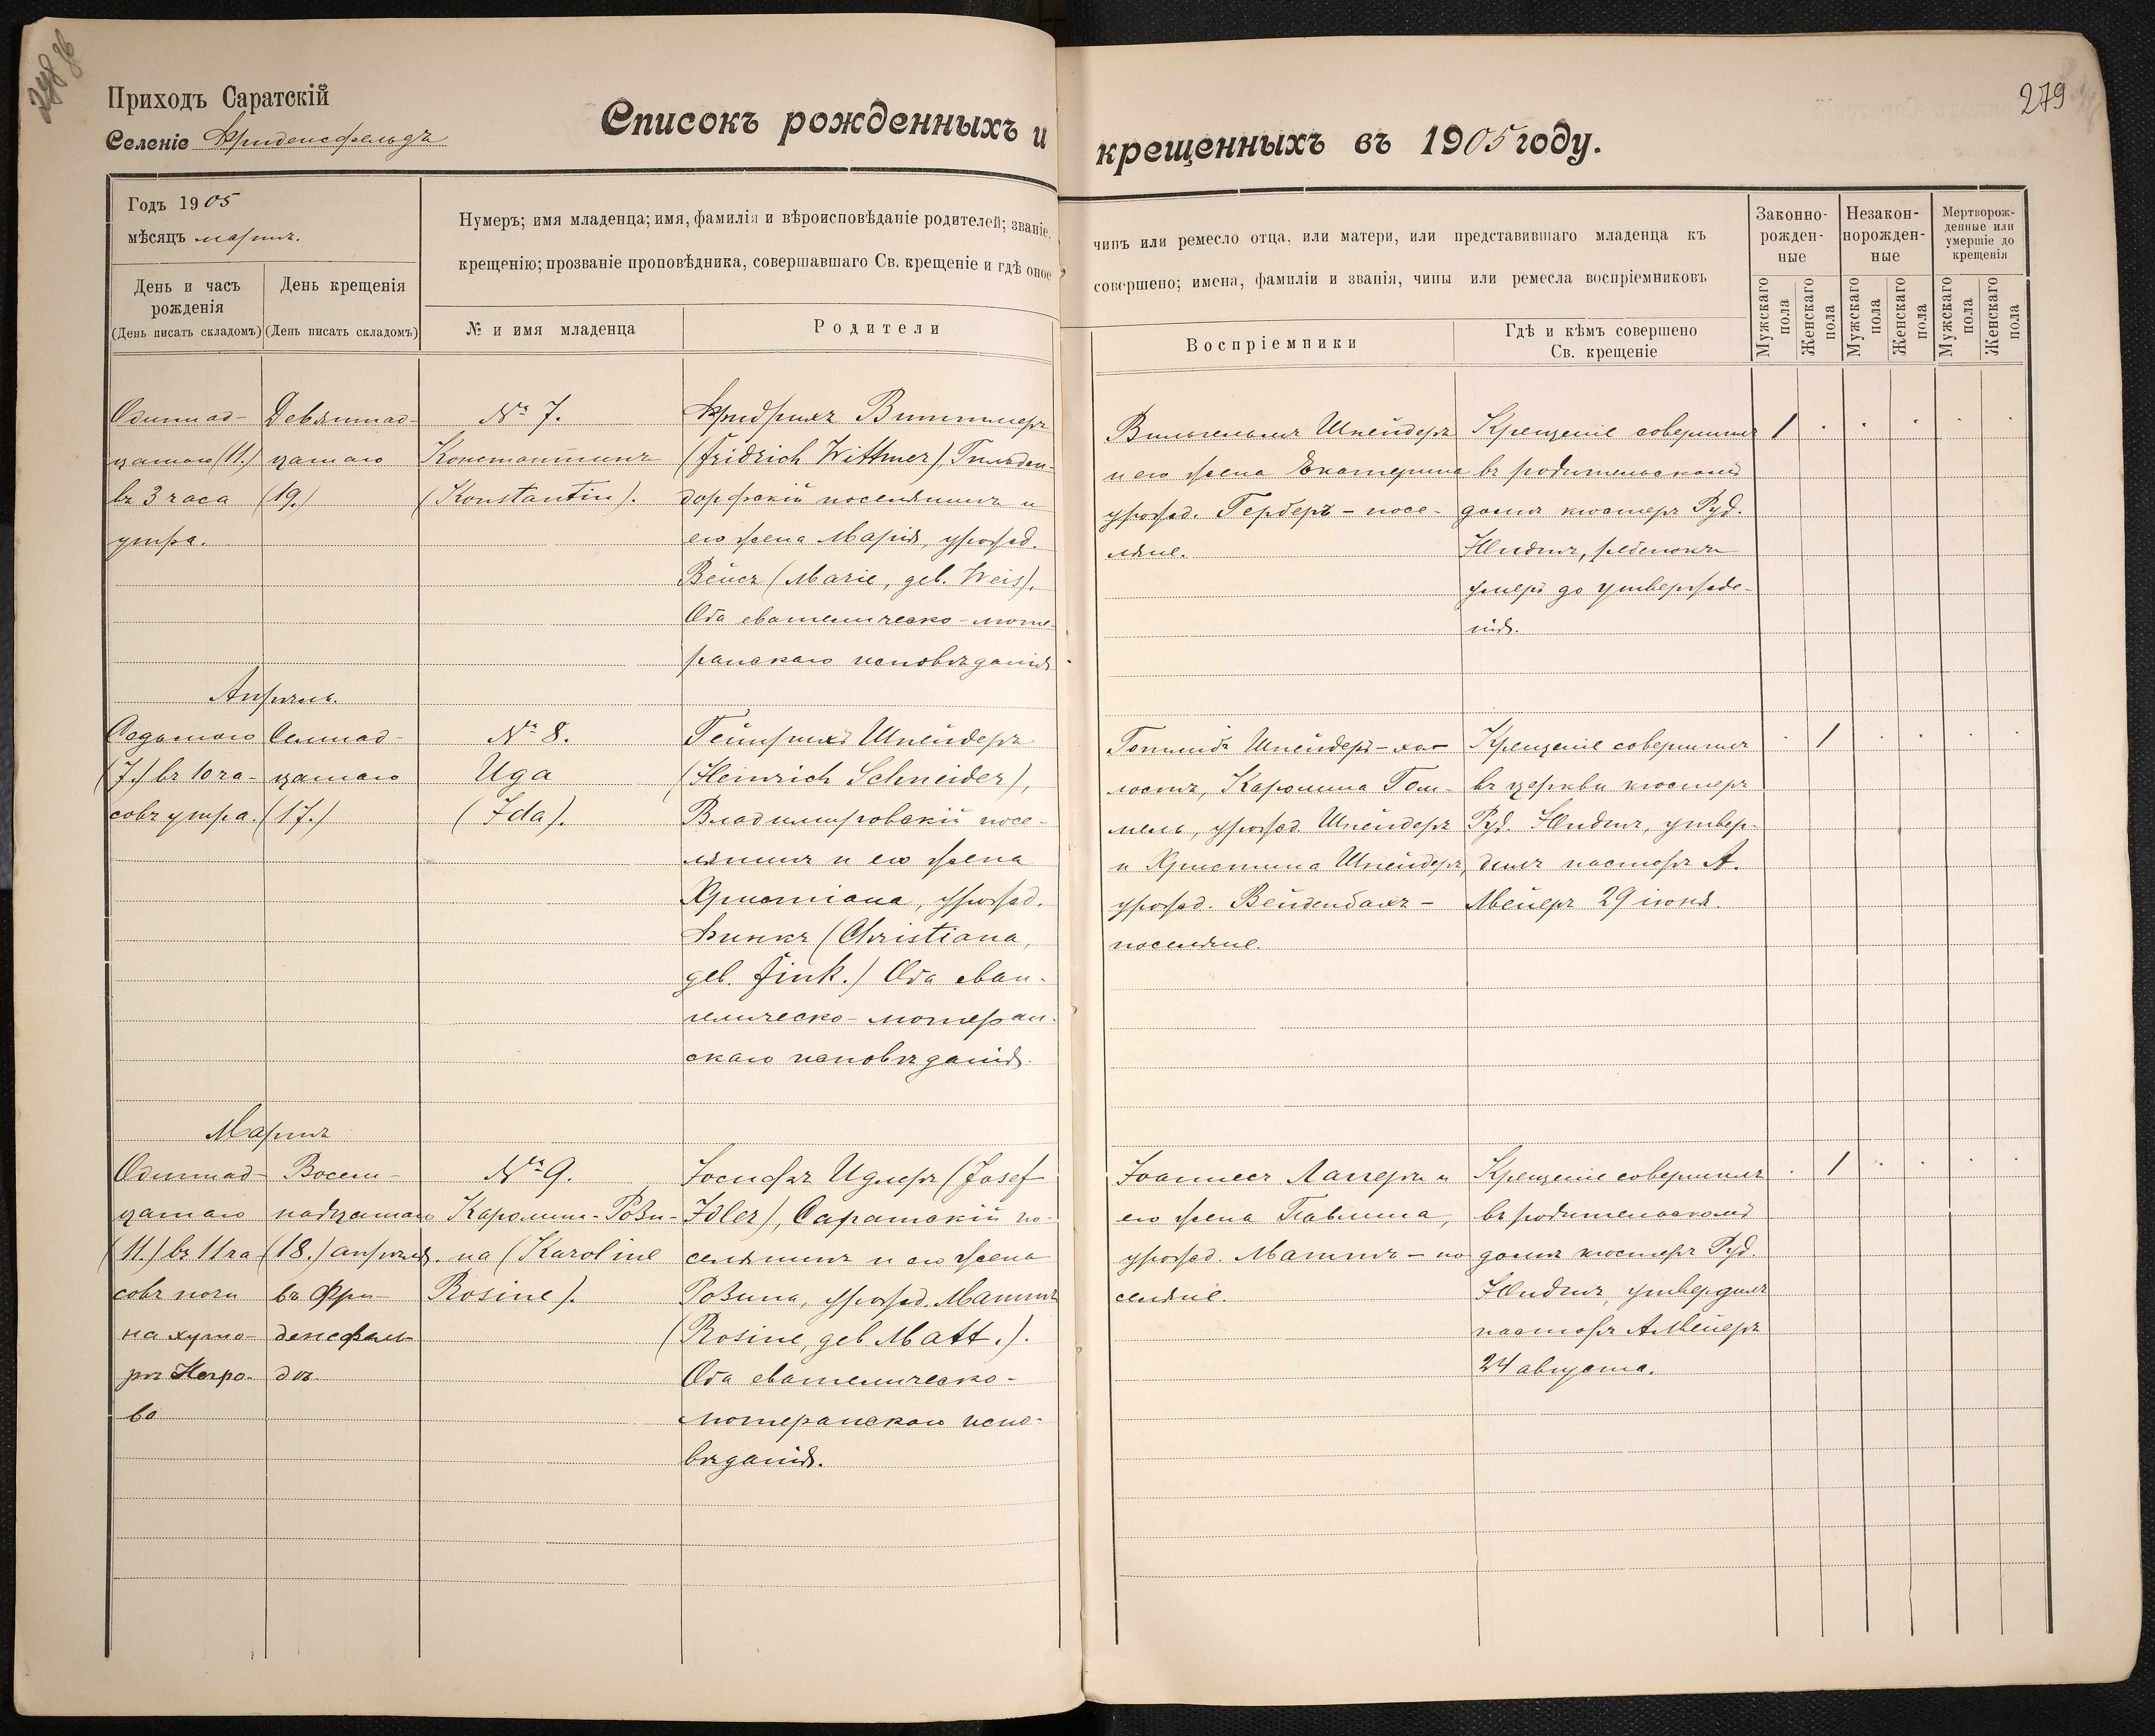 279
Приходъ Саратскій
Селеніе Фриденсфельдъ
Списокъ рожденныхъ и крещенныхъ въ 1905 году.
Годъ 1905
мѣсяцъ мартъ.
День и часъ рожденія
(День писать складомъ)
День крещенія
(День писать складомъ)
Нумеръ; имя младенца; имя, фамилія и вѣроисповѣданіе родителей; званіе,
чинъ или ремесло отца, или матери, или представившаго младенца къ
крещенію; прозваніе проповѣдника, совершавшаго Св. крещеніе и гдѣ оное
совершено; имена, фамиліи и званія, чины или ремесла воспріемниковъ
№ и имя младенца
Родители
Воспріемники
Гдѣ и кѣмъ совершено
Св. крещеніе
Законно-
рожден-
ные
Незакон-
норожден-
ные
Мертворож-
денные или
умершіе до
крещенія
Мужскаго пола
Женскаго пола
Мужскаго пола
Женскаго пола
Мужскаго пола
Женскаго пола
Одиннад-
цатаго (11.)
въ 3 часа
утра.
Девятнад-
цатаго
(19.)
№ 7.
Константинъ
(Konstantin).
Фридрихъ Виттмеръ
(Fridrich Wittmer), Гнаден-
дорфскій поселянинъ и
его жена Марія, урожд.
Вейсъ (Marie, geb. Weis).
Оба евангелическо-люте-
ранскаго исповѣданія
Вильгельмъ Шнейдеръ
и его жена Екатерина
урожд. Герберъ - посе-
ляне.
Крещеніе совершилъ
въ родительскомъ
домѣ кюстеръ Руд.
Юндтъ, ребенокъ
умеръ до утвержде-
нія.
1
Апрѣль.
Седьмого
(7.) въ 10 ча-
совъ утра.
Семнад-
цатаго
(17.)
№ 8.
Ида
(Ida).
Гейнрихъ Шнейдеръ
(Heinrich Schneider),
Владимировскій посе-
лянинъ и его жена
Христіана, урожд.
Финкъ (Christiana,
geb. Fink.) Оба еван-
гелическо-лютеран-
скаго исповѣданія.
Готлибъ Шнейдеръ - хо-
лостъ, Каролина Гом-
мель, урожд. Шнейдеръ
и Христина Шнейдеръ,
урожд. Вейденбахъ -
поселяне.
Крещеніе совершилъ
въ церкви кюстеръ
Руд. Юндтъ, утвер-
дилъ пасторъ А.
Мейеръ 29 іюня.
1
Мартъ
Одиннад-
цатаго
(11.) въ 11 ча-
совъ ночи
на хуто-
рѣ
Восем-
надцатаго
(18.) апрѣля.
въ Фри-
денсфель-
дѣ
№ 9.
Каролина-Рози-
на (Karoline
Rosine).
Іосифъ Идлеръ (Josef
Idler), Саратскій по-
селянинъ и его жена
Розина, урожд. Маттъ
(Rosine, geb. Matt.).
Оба евангелическо-
лютеранскаго испо-
вѣданія.
Іоаннесъ Лаперъ и
его жена Павлина,
урожд. Маттъ - по-
селяне.
Крещеніе совершилъ
въ родительскомъ
домѣ кюстеръ Руд.
Юндтъ, утвердилъ
пасторъ А. Мейеръ
24 августа.
1